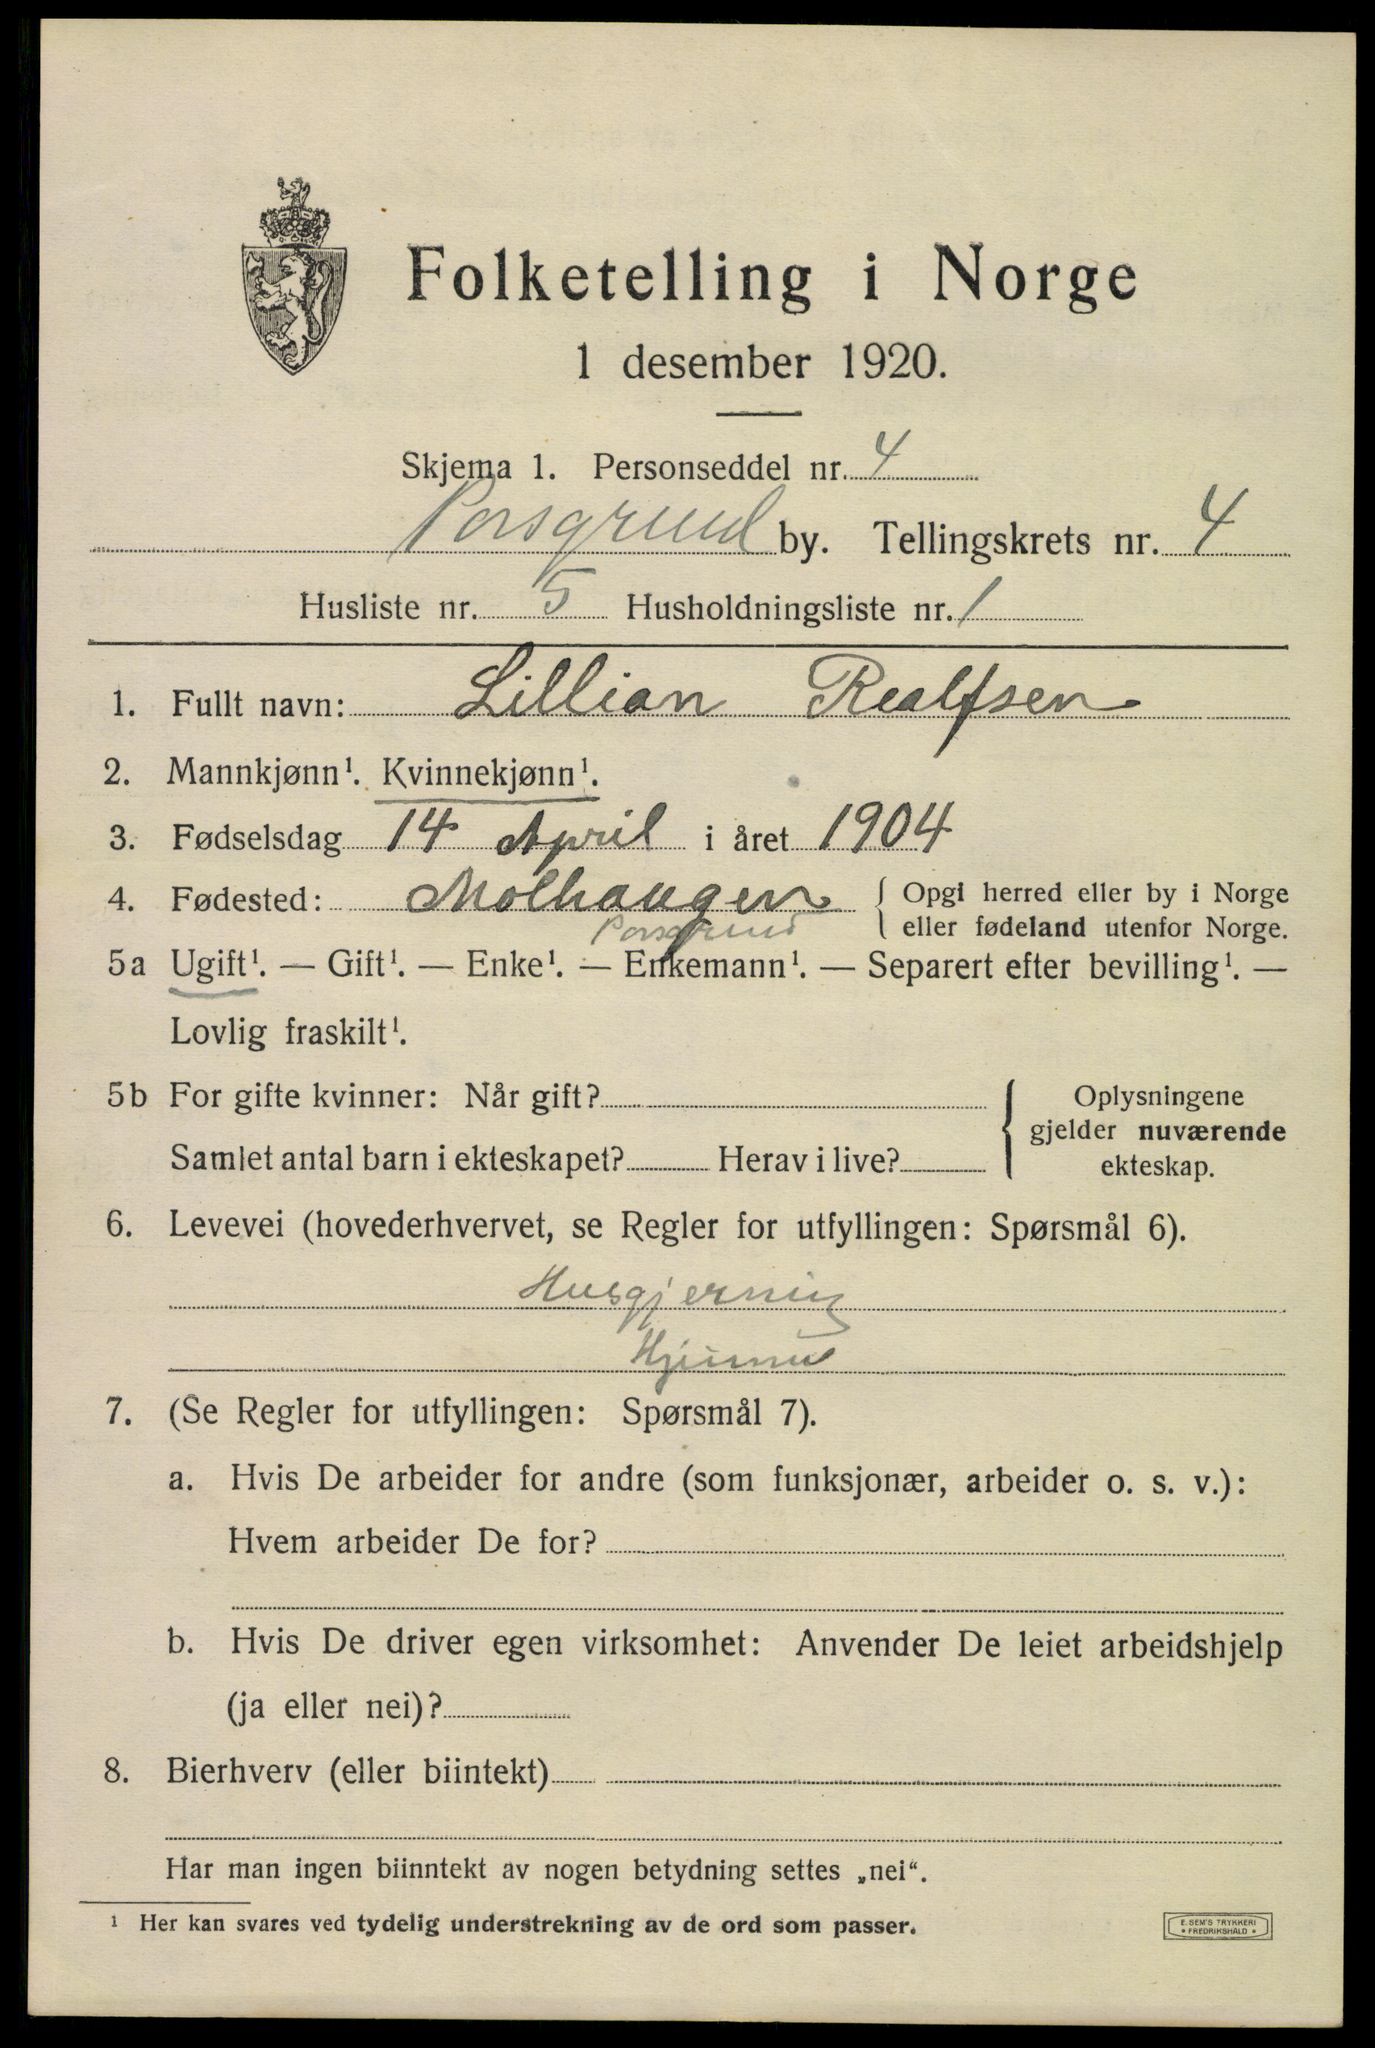 Folketelling i Norge
1 desember 1920.
Skjema 1. Personseddel nr. 4
Porsgrund by. Tellingskrets nr. 4
Husliste nr. 5 Husholdningsliste nr. 1
1. Fullt navn: Lillian Realfsen
2. Mannkjønn¹. Kvinnekjønn¹.
3. Fødselsdag 14 April i året 1904
4. Fødested: Molhaugen { Opgi herred eller by i Norge
eller fødeland utenfor Norge.
Porsgrund
5a Ugift¹. — Gift¹. — Enke¹. — Enkemann¹. — Separert efter bevilling¹. —
Lovlig fraskilt¹.
5b For gifte kvinner: Når gift?
Samlet antal barn i ekteskapet? Herav i live?
{ Oplysningene
gjelder nuværende
ekteskap.
6. Levevei (hovederhvervet, se Regler for utfyllingen: Spørsmål 6).
Husgjerning
Hjemme
7. (Se Regler for utfyllingen: Spørsmål 7).
a. Hvis De arbeider for andre (som funksjonær, arbeider o. s. v.):
Hvem arbeider De for?
b. Hvis De driver egen virksomhet: Anvender De leiet arbeidshjelp
(ja eller nei)?
8. Bierhverv (eller biintekt)
Har man ingen biinntekt av nogen betydning settes „nei“.
¹ Her kan svares ved tydelig understrekning av de ord som passer.
E. SEM'S TRYKKERI
* FREDRIKSHALD *